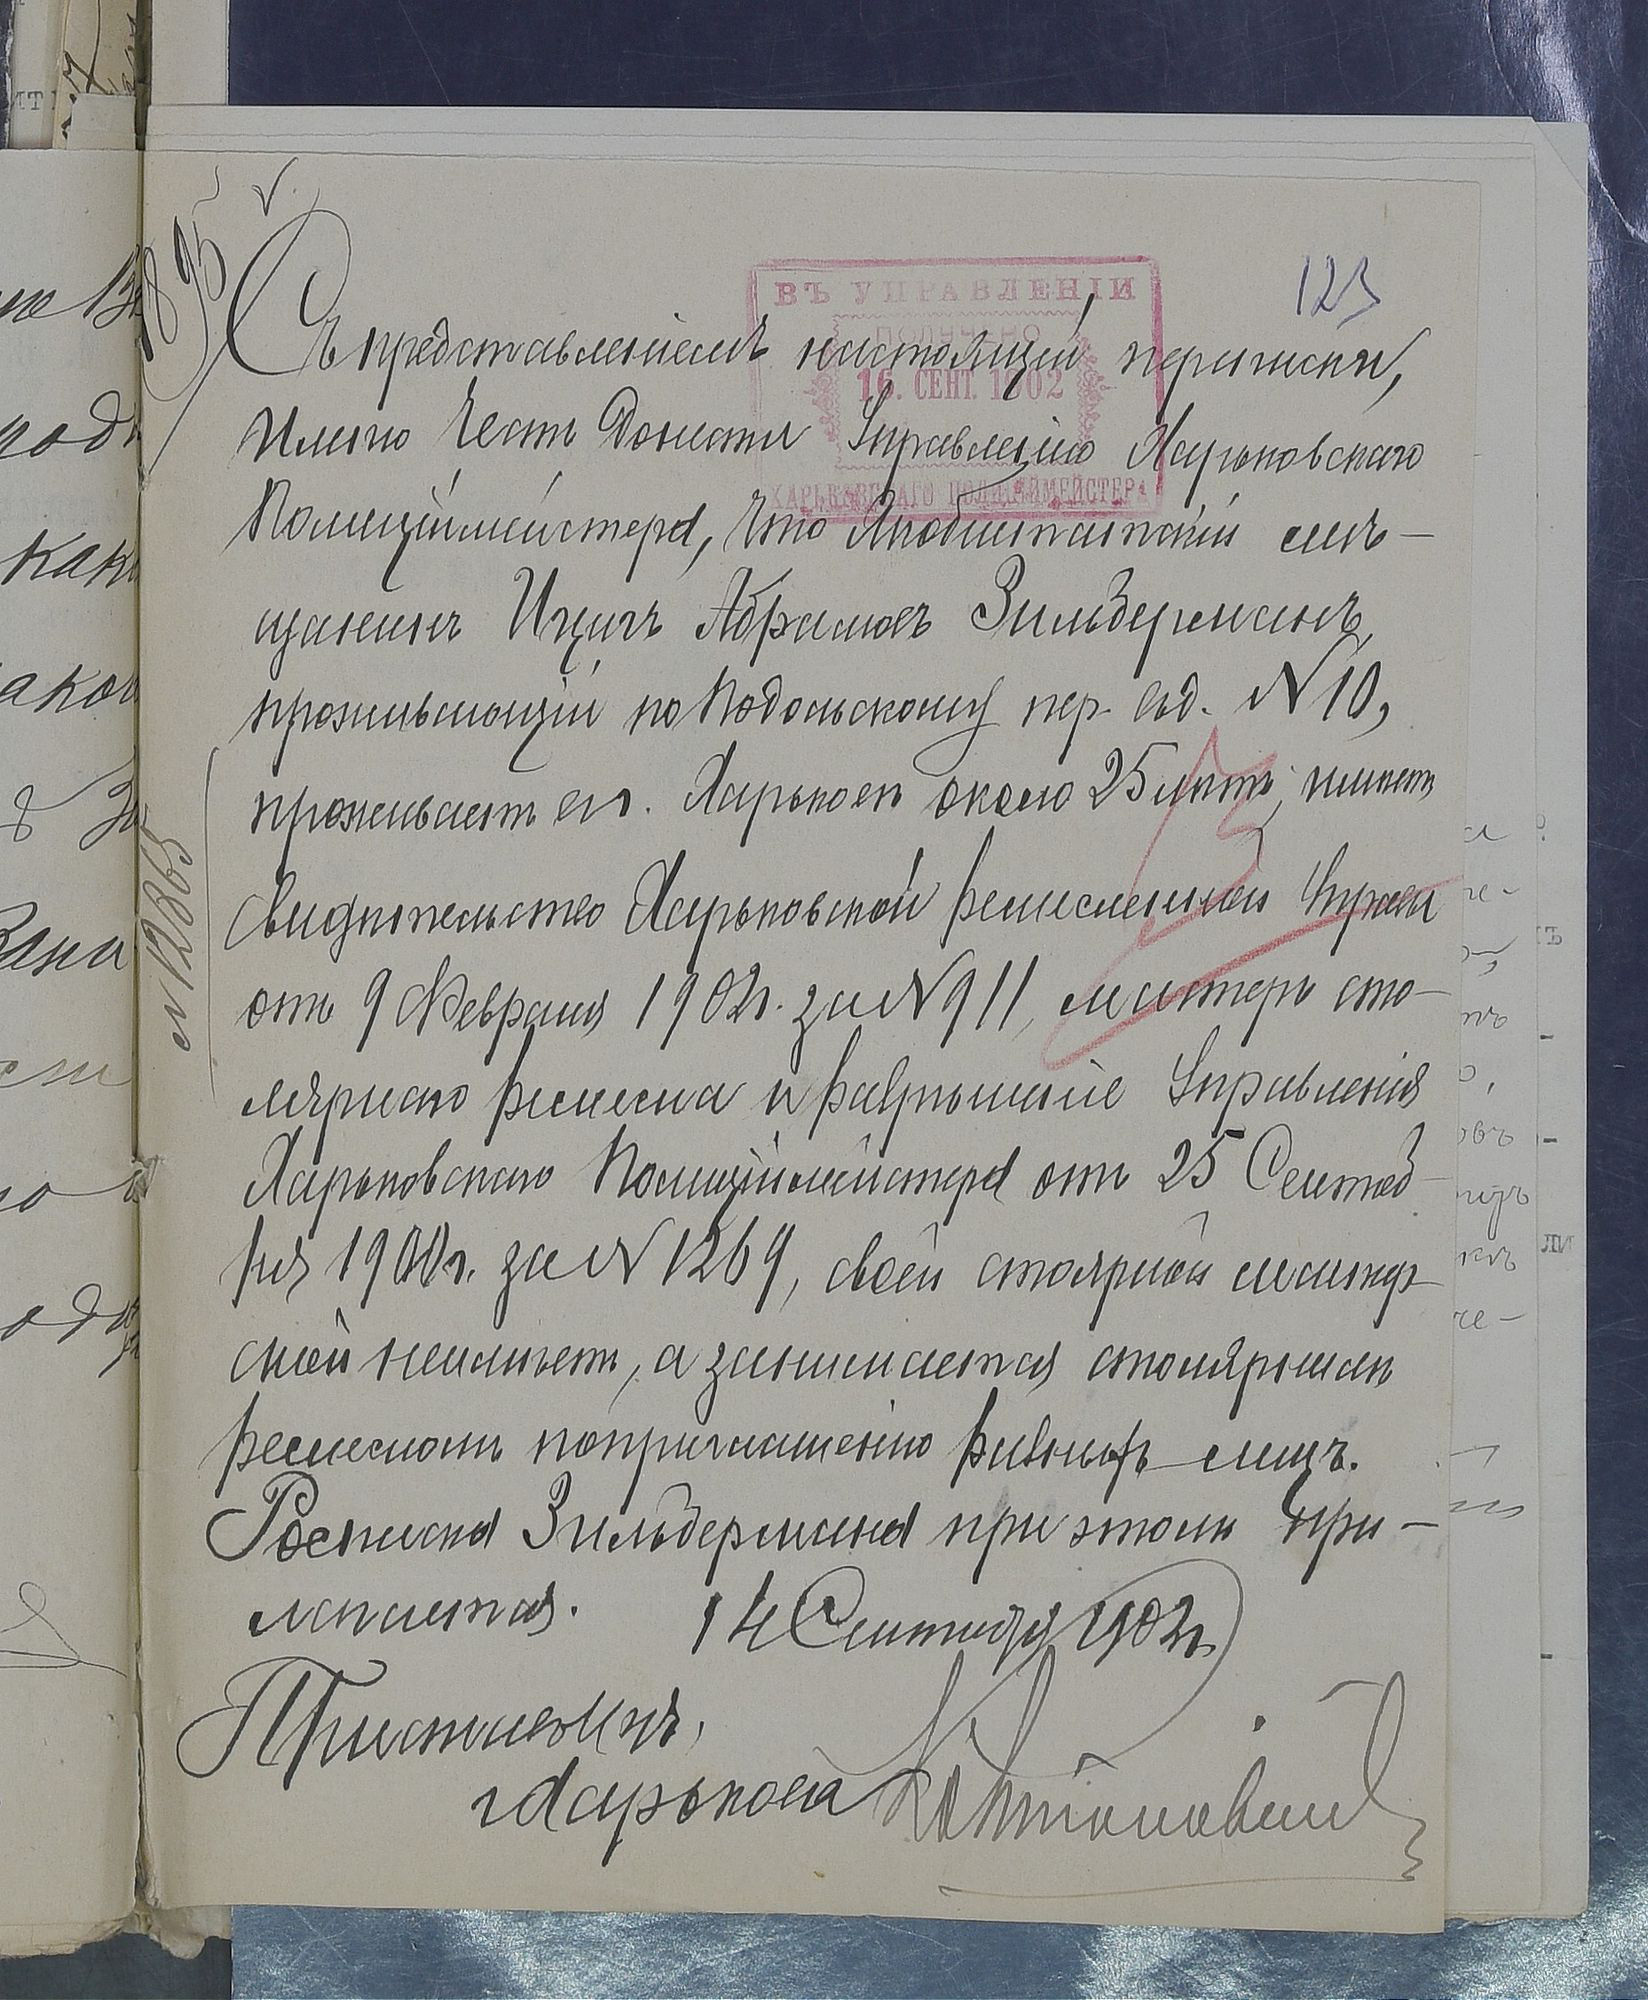 123
ВЪ УПРАВЛЕНІИ
ПОЛУЧЕНО
16. СЕНТ. 1902
ХАРЬКОВСКАГО ПОЛИЦІЙМЕЙСТЕРА
Съ представленіемъ настоящей переписки,
имѣю честь донести Управленію Харьковскаго
Полиціймейстера, что мѣ-
щанинъ Ицигъ Абрамовъ Зильберманъ,
проживающій по Подольскому пер. въ д. № 10,
проживаетъ въ г. Харьковѣ около 25 лѣтъ, имѣетъ
свидѣтельство Харьковской ремесленной Управы
отъ 9 Февраля 1902 г. за № 911, мастеръ сто-
лярнаго ремесла и разрѣшеніе Управленія
Харьковскаго Полиціймейстера отъ 25 Сентяб-
ря 1900 г. за № 1269, своей столярной мастер-
ской неимѣетъ, а занимается столярнымъ
ремесломъ поприглашенію разныхъ лицъ.
Росписка Зильбермана при этомъ при-
лагается. 14 Сентября 1902 г.
Приставъ
г Харькова
№ 12865